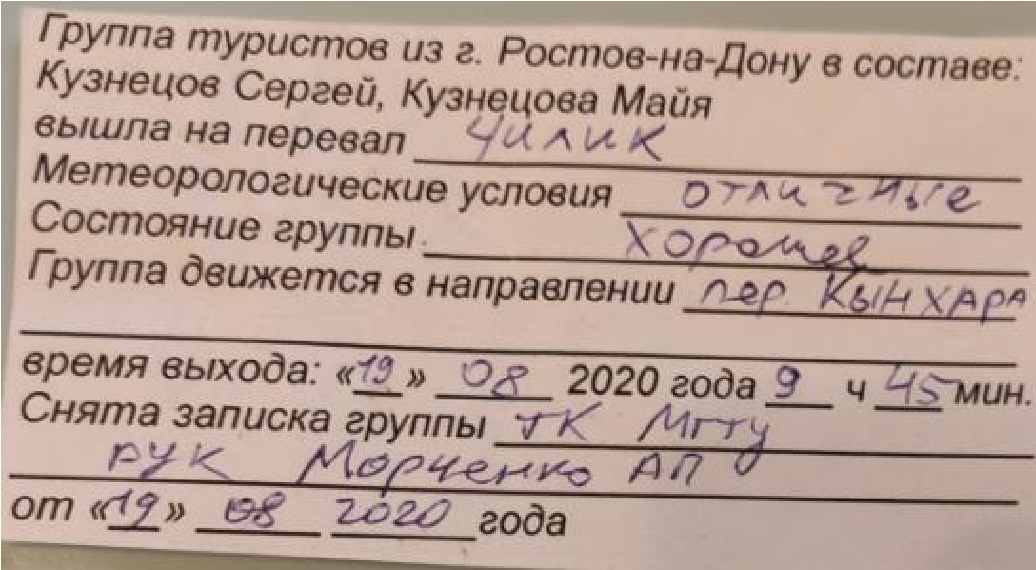 Группа туристов из г. Ростов-на-Дону в составе:
Кузнецов Сергей, Кузнецова Майя
вышла на перевал Чилик
Метеорологические условия отличные
Состояние группы хорошее
Группа движется в направлении пер. Кынхара
время выхода: «19» 08 2020 года 9 ч 45 мин.
Снята записка группы ТК МГТУ
рук Морченко АП
от «19» 08 2020 года